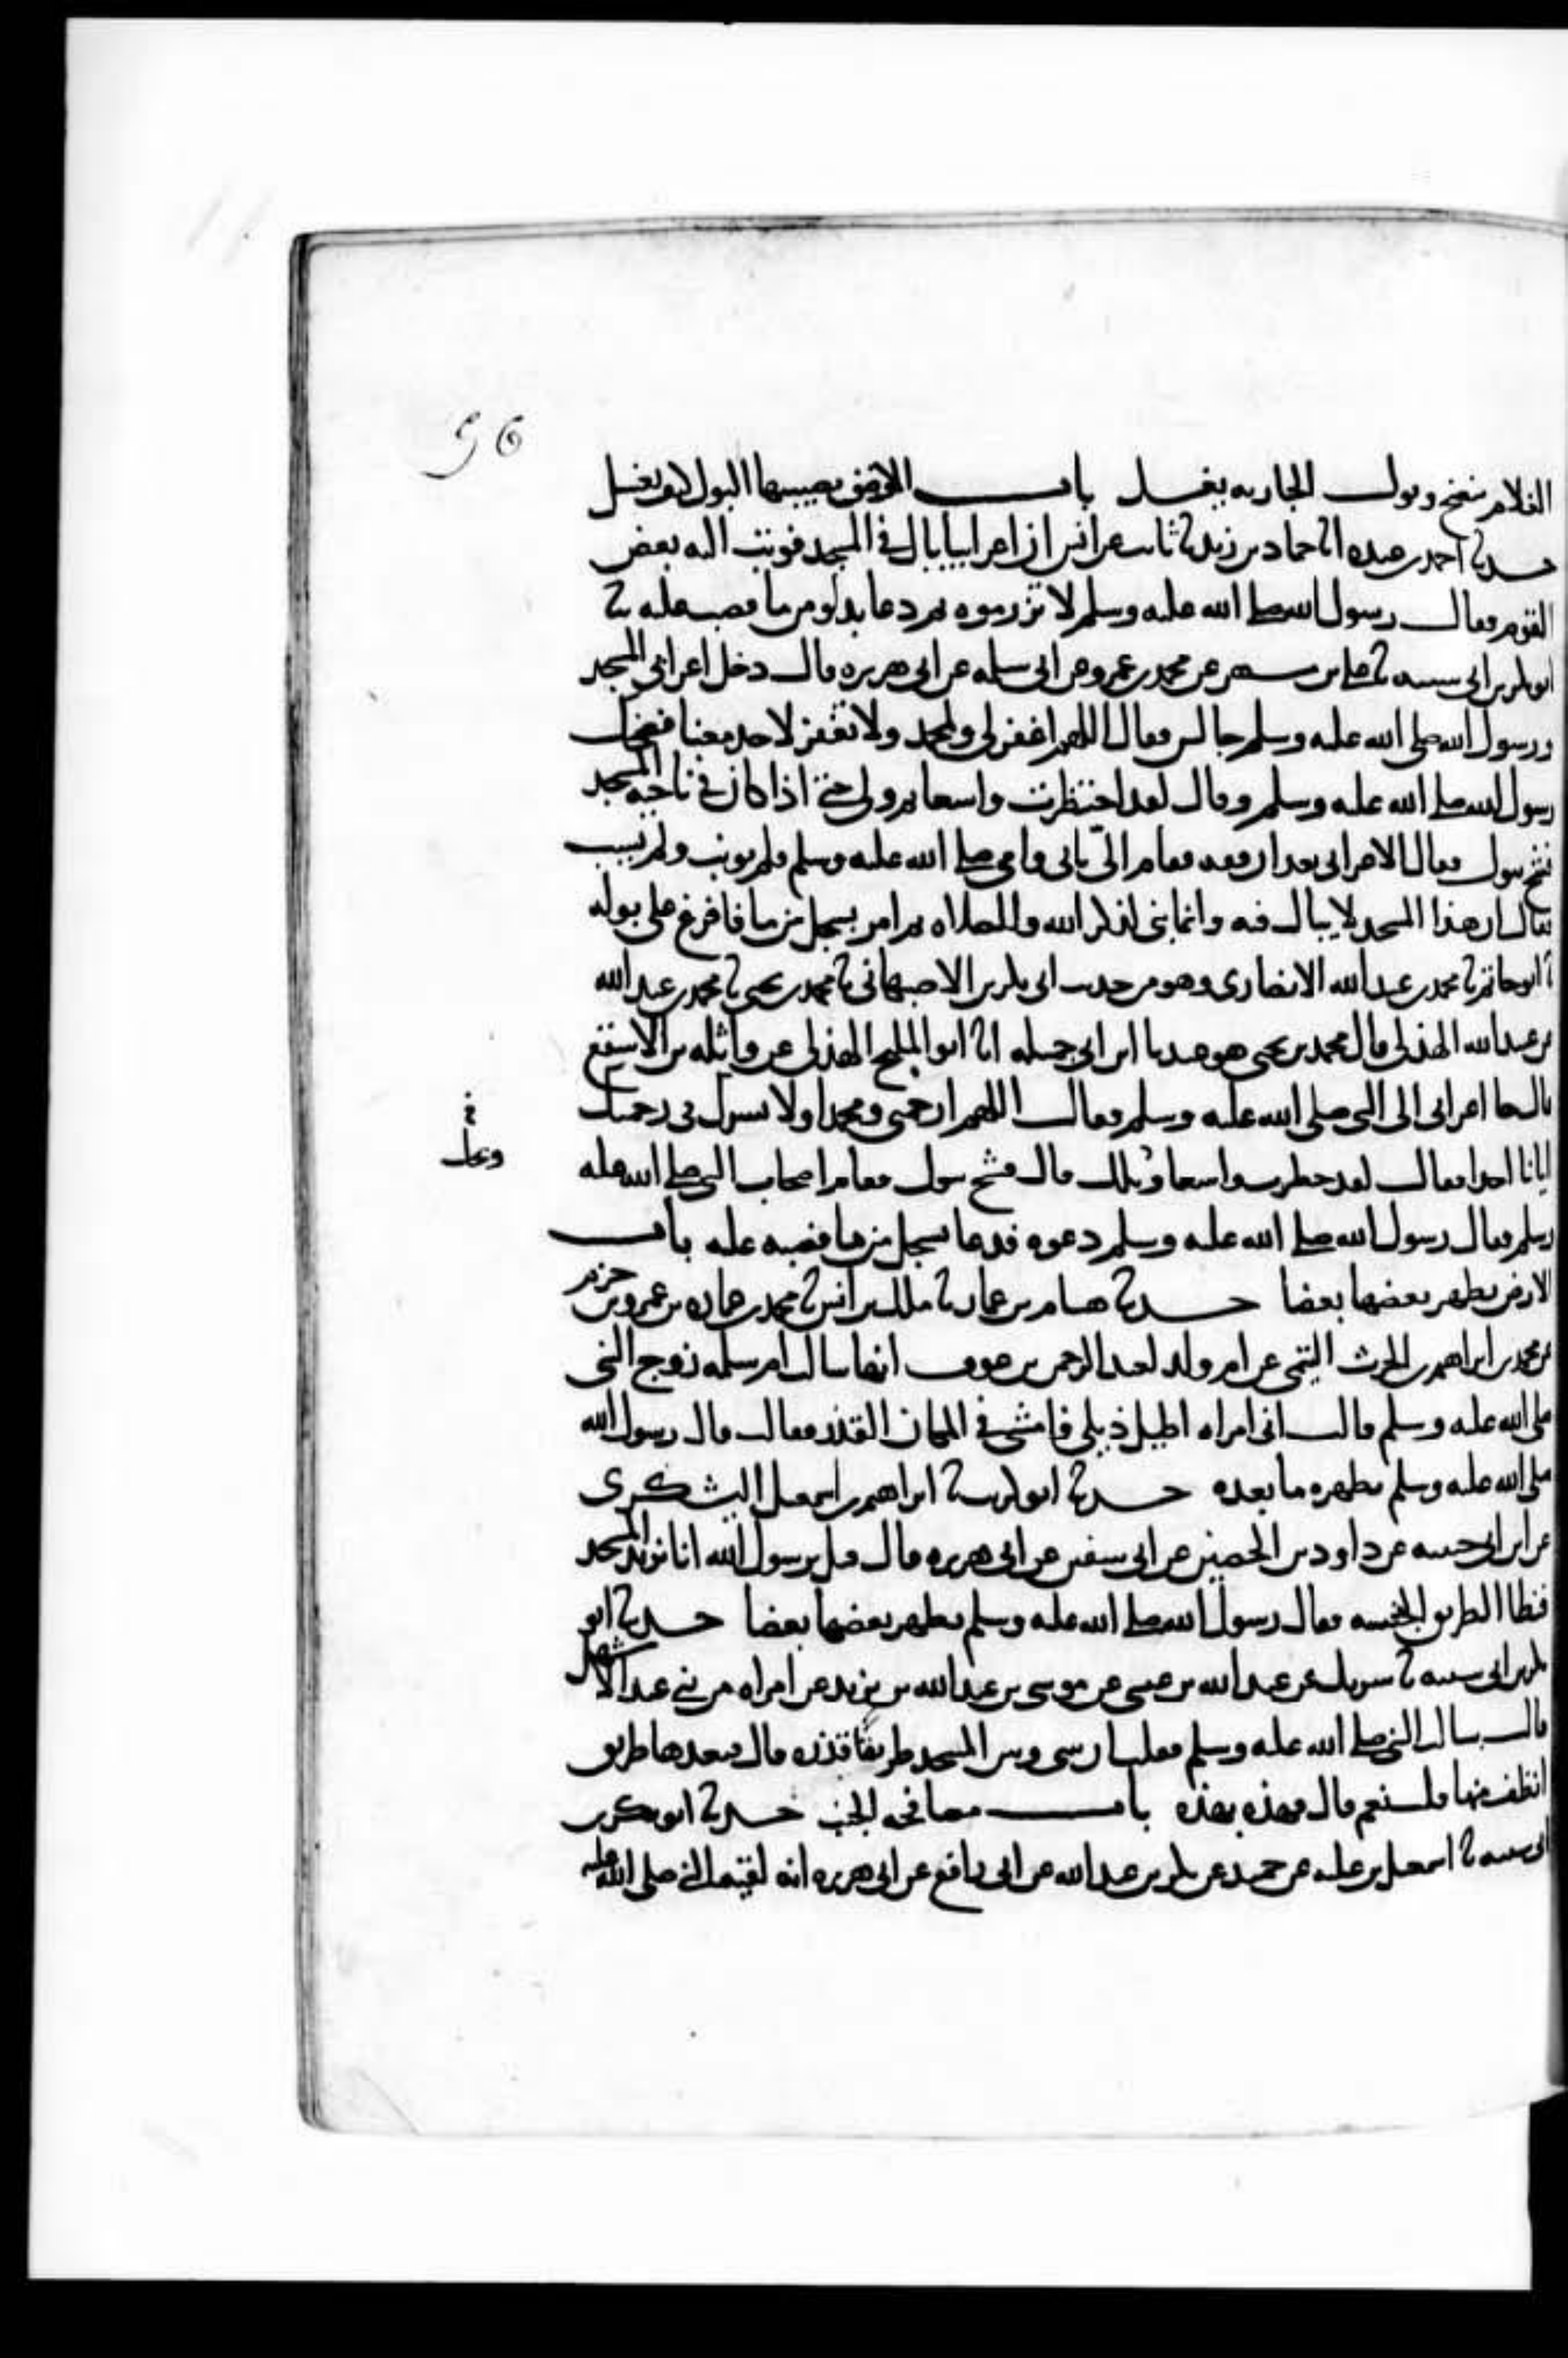 56
الغلام ينضح وبول الجاريه يغسل باب الارض يصيبها البول كيف تغسل
حدثنا احمد بن عبده انا حماد بن زيد ثنا ثابت عن انس ان اعرابيا بال في المسجد فوثب اليه بعض
القوم فقال رسول الله صلى الله عليه وسلم لا تزرموه ثم دعا بدلو من ما فصب عليه ثنا
ابو بكر بن ابي شيبه ثنا علي بن مسهر عن محمد بن عمرو عن ابي سلمه عن ابي هريره قال دخل اعرابي المسجد
ورسول الله صلى الله عليه وسلم جالس فقال اللهم اغفر لي ولمحمد ولا تغفر لاحد معنا فضحك
رسول الله صلى الله عليه وسلم وقال لقد احتظرت واسعا ثم ولى حتى اذا كان في ناحيه المسجد
فشج يبول فقال الاعرابي بعد ان فقه فقام الي بابي وامي صلى الله عليه وسلم فلم يونب ولم يسب
فقال ان هذا المسجد لا يبال فيه وانما بني لذكر الله وللصلاه ثم امر بسجل من ما فافرغ على بوله
ثنا ابو حاتم ثنا محمد بن عبد الله الانصاري وهو من حديث ابي بكر بن الاصبهاني ثنا محمد بن يحيى ثنا محمد بن عبد الله
بن عبد الله الهذلي قال محمد بن يحيى هو عندنا ابن ابي حميله انا ابو المليح الهذلي عن واثله بن الاسقع
قال جا اعرابي الى النبي صلى الله عليه وسلم فقال اللهم ارحمني ومحمدا ولا تشرك في رحمتك
ايانا احدا فقال لقد حظرت واسعا ويلك قال فشج يبول فقام اصحاب النبي صلى الله عليه
وسلم فقال رسول الله صلى الله عليه وسلم دعوه فدعا بسجل من ما فصبه عليه باب
الارض يطهر بعضها بعضا حدثنا هشام بن عمار ثنا ملك بن انس ثنا محمد بن عماره بن عمرو بن حزم
عن محمد بن ابراهيم بن الحرث التيمي عن ام ولد لعبد الرحمن بن عوف انها سالت ام سلمه زوج النبي
صلى الله عليه وسلم قالت اني امراه اطيل ذيلي فامشي في المكان القذر فقالت قال رسول الله
صلى الله عليه وسلم يطهره ما بعده حدثنا ابو كريب ثنا ابراهيم بن اسمعيل اليشكري
عن ابن ابي حبيبه عن داود بن الحصين عن ابي سفين عن ابي هريره قال قيل يرسول الله انا نريد المسجد
فنطا الطريق النجسه فقال رسول الله صلى الله عليه وسلم يطهر بعضها بعضا حدثنا ابو
بكر بن ابي شيبه ثنا شريك عن عبد الله بن عيسى عن موسى بن عبد الله بن يزيد عن امراه من بني عبد الاشهل
قالت سالت النبي صلى الله عليه وسلم فقلت ان بيني وبين المسجد طريقا قذره قال فبعدها طريق
انظف منها قلت نعم قال فهذه بهذه باب مصافحه الجنب حدثنا ابو بكر بن
ابي شيبه ثنا اسمعيل بن عليه عن حميد عن بكر بن عبد الله عن ابي رافع عن ابي هريره انه لقيه النبي صلى الله عليه